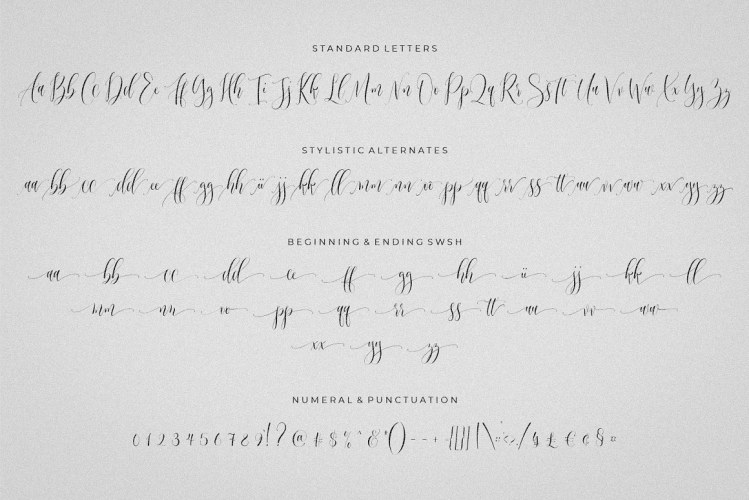 STANDARD LETTERS
Aa Bb Cc Dd Ee Ff Gg Hh Ii Jj Kk Ll Mm Nn Oo Pp Qq Rr Ss Tt Uu Vv Ww Xx Yy Zz
STYLISTIC ALTERNATES
aa bb cc dd ee ff gg hh ii jj kk ll mm nn oo pp qq rr ss tt uu vv ww xx yy zz
BEGINNING & ENDING SWSH
aa bb cc dd ee ff gg hh ii jj kk ll
mm nn oo pp qq rr ss tt uu vv ww
xx yy zz
NUMERAL & PUNCTUATION
0 1 2 3 4 5 6 7 8 9 ! ? @ # $ % ^ & * ( ) - - +